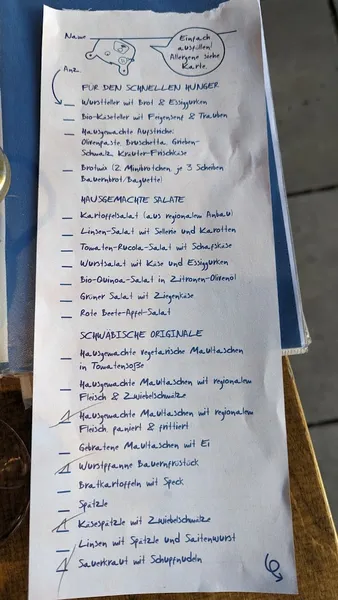 Name
Einfach
ausfüllen!
Allergene siehe
Karte.
Anz.
FÜR DEN SCHNELLEN HUNGER
Wurstteller mit Brot & Essiggurken
Bio-Käseteller mit Feigensenf & Trauben
Hausgemachte Aufstriche:
Olivenpaste, Bruschetta, Grieben-
Schmalz, Kräuter-Frischkäse
Brotmix (2 Minibrötchen, je 3 Scheiben
Bauernbrot/Baguette)
HAUSGEMACHTE SALATE
Kartoffelsalat (aus regionalem Anbau)
Linsen-Salat mit Sellerie und Karotten
Tomaten-Rucola-Salat mit Schafskäse
Wurstsalat mit Käse und Essiggurken
Bio-Quinoa-Salat in Zitronen-Olivenöl
Grüner Salat mit Ziegenkäse
Rote Beete-Apfel-Salat
SCHWÄBISCHE ORIGINALE
Hausgemachte vegetarische Maultaschen
in Tomatensoße
Hausgemachte Maultaschen mit regionalem
Fleisch & Zwiebelschmälze
1 Hausgemachte Maultaschen mit regionalem
Fleisch paniert & frittiert
Gebratene Maultaschen mit Ei
1 Wurstpfanne Bauernfrüstück
Bratkartoffeln mit Speck
Spätzle
1 Käsespätzle mit Zwiebelschmälze
Linsen mit Spätzle und Saitenwurst
1 Sauerkraut mit Schupfnudeln